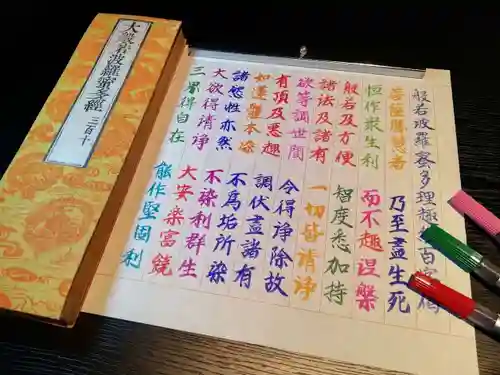 大般若波羅蜜多經 三百十
般若波羅蜜多理趣百字偈
菩薩勝恵者
乃至盡生死
恒作衆生利
而不趣涅槃
般若及方便
智度悉加持
諸法及諸有
一切皆清浄
欲等調世間
令得浄除故
有頂及悪趣
調伏盡諸有
如蓮體本染
不為垢所染
諸慾性亦然
不染利群生
大欲得清浄
大安楽富饒
三界得自在
能作堅固利